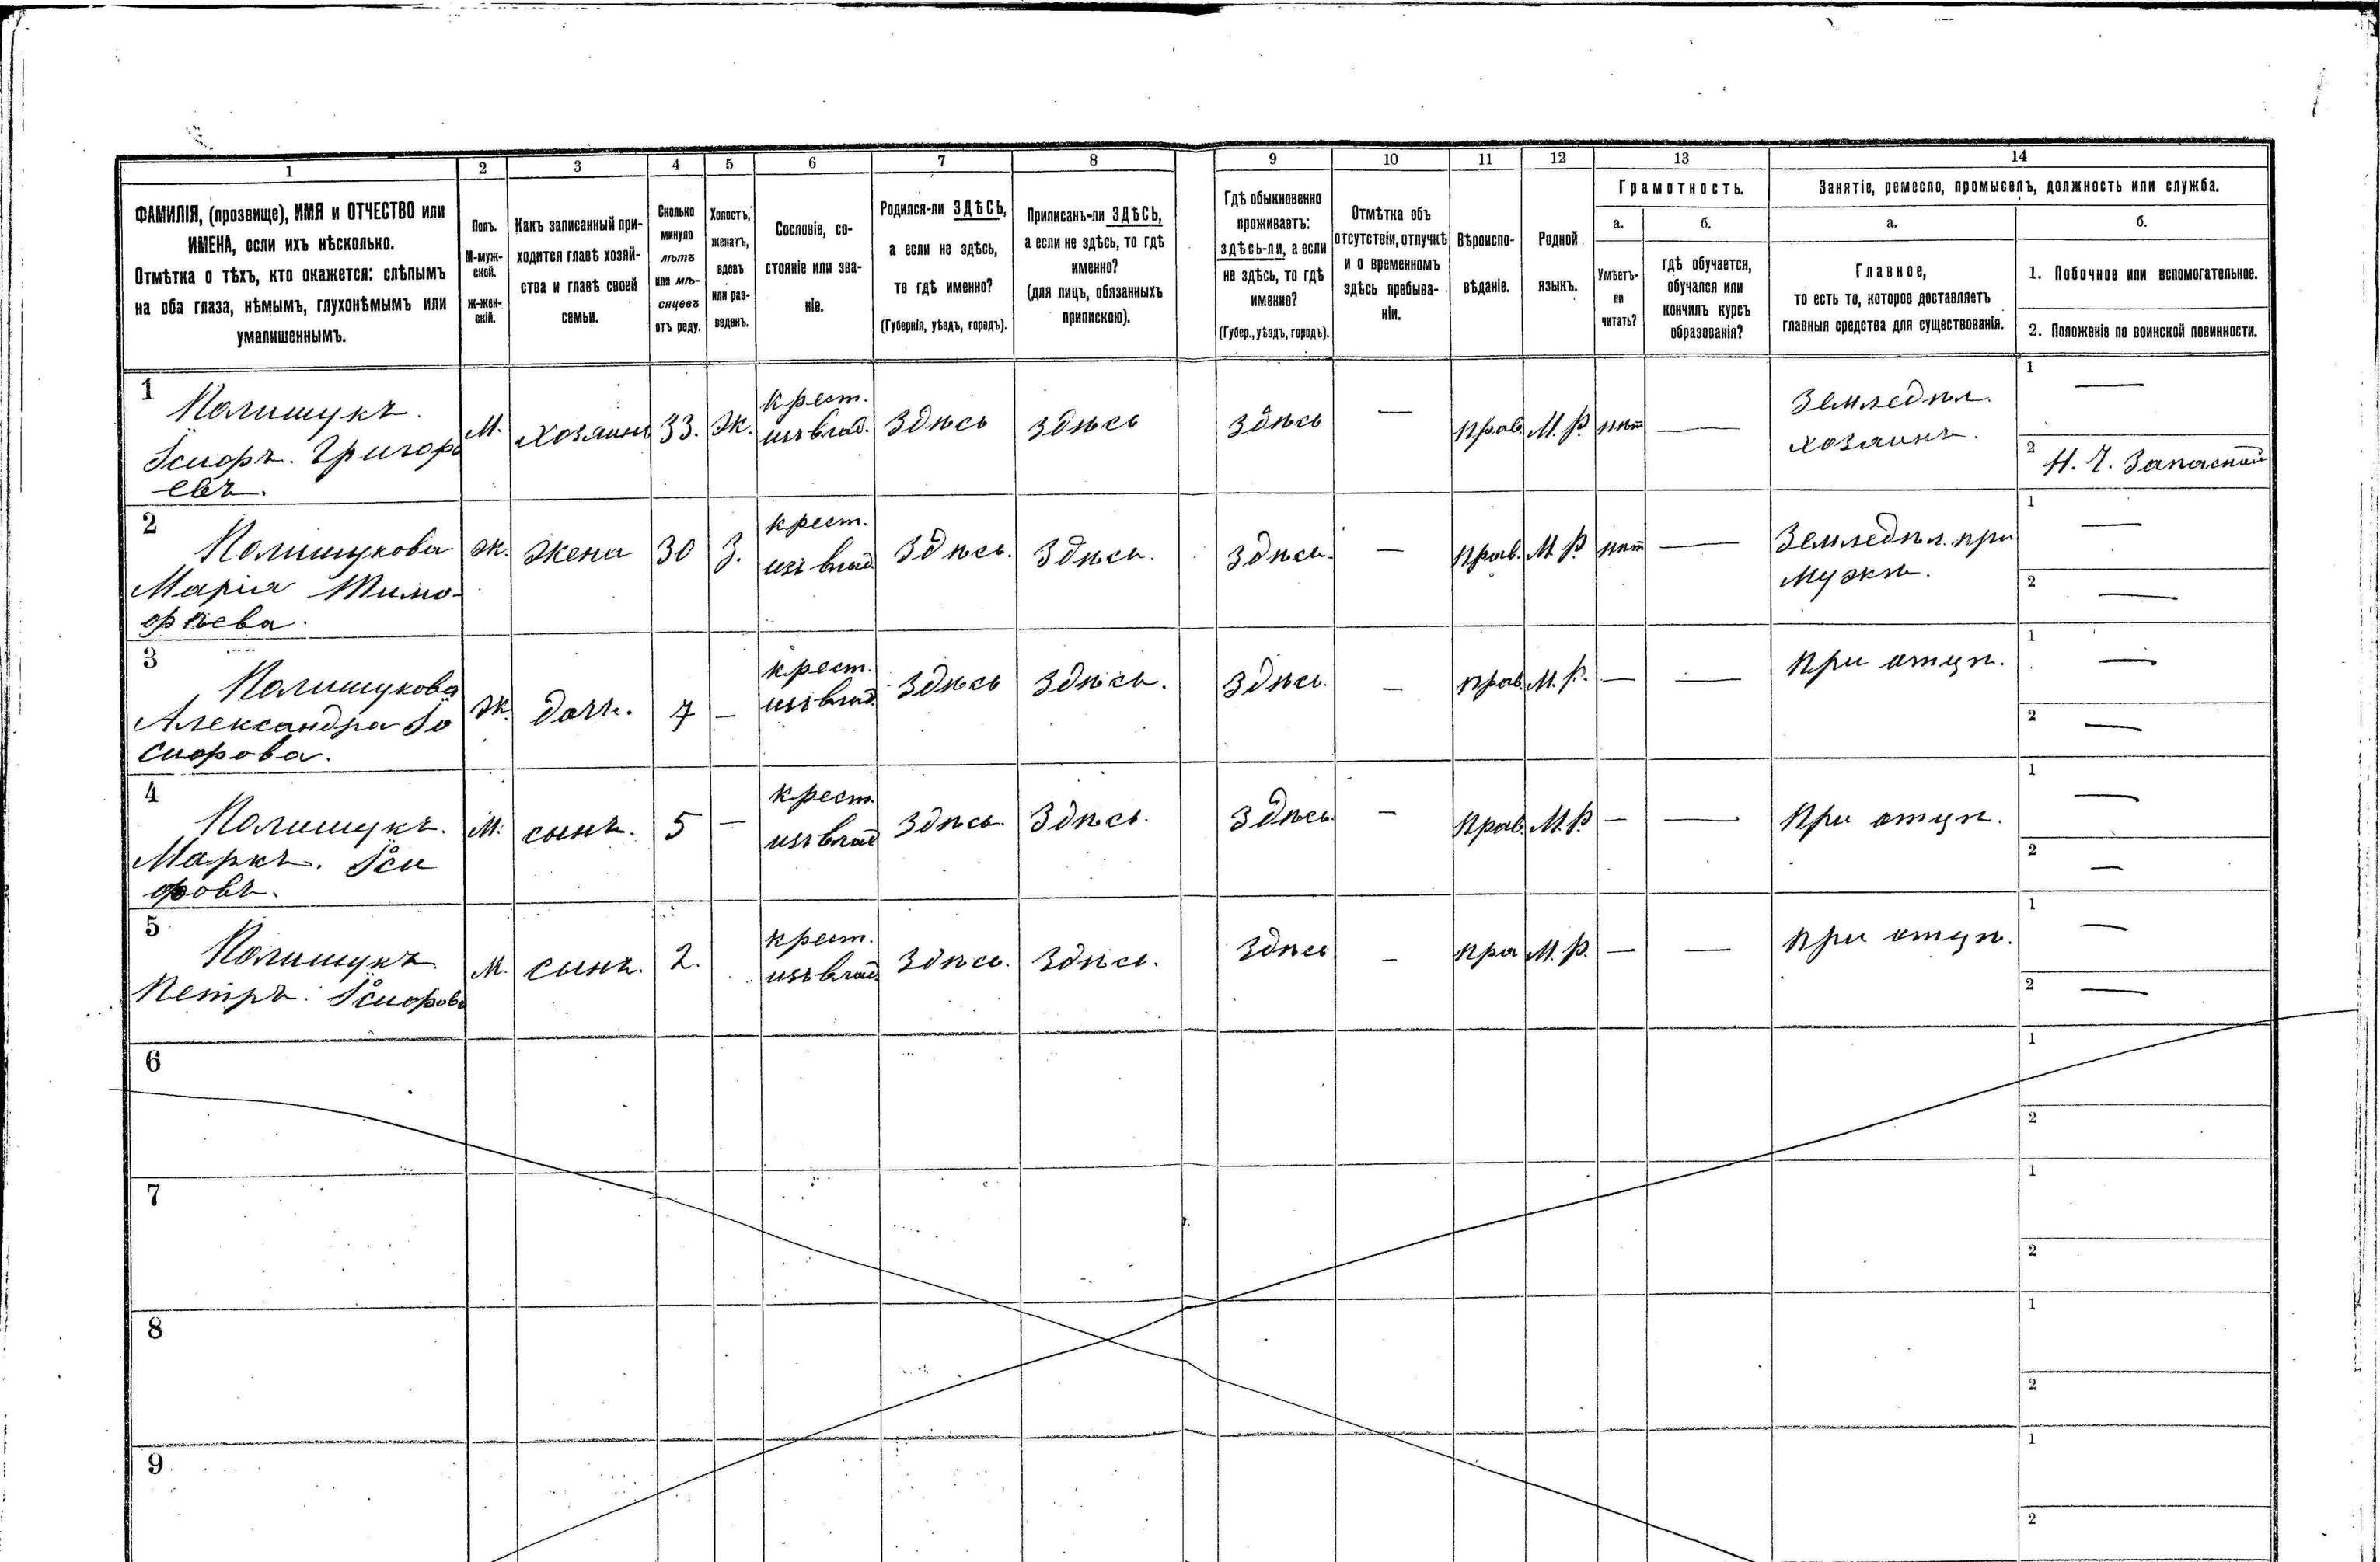 1 2 3 4 5 6 7 8 9 10 11 12 13 14
ФАМИЛІЯ, (прозвище), ИМЯ и ОТЧЕСТВО или
ИМЕНА, если ихъ нѣсколько.
Отмѣтка о тѣхъ, кто окажется: слѣпымъ
на оба глаза, нѣмымъ, глухонѣмымъ или
умалишеннымъ.
Полъ.
М-муж-
ской.
Ж-жен-
скій.
Какъ записанный при-
ходится главѣ хозяй-
ства и главѣ своей
семьи.
Сколько
минуло
лѣтъ
или мѣ-
сяцевъ
отъ роду.
Холостъ,
женатъ,
вдовъ
или раз-
веденъ.
Сословіе, со-
стояніе или зва-
ніе.
Родился-ли ЗДѢСЬ,
а если не здѣсь,
то гдѣ именно?
(Губернія, уѣздъ, городъ).
Приписанъ-ли ЗДѢСЬ,
а если не здѣсь, то гдѣ
именно?
(для лицъ, обязанныхъ
припискою).
Гдѣ обыкновенно
проживаетъ:
здѣсь-ли, а если
не здѣсь, то гдѣ
именно?
(Губер., уѣздъ, городъ).
Отмѣтка объ
отсутствіи, отлучкѣ
и о временномъ
здѣсь пребыва-
ніи.
Вѣроиспо-
вѣданіе.
Родной
языкъ.
Грамотность.
а.
Умѣетъ-
ли
читать?
б.
гдѣ обучается,
обучался или
кончилъ курсъ
образованія?
Занятіе, ремесло, промыселъ, должность или служба.
а.
Главное,
то есть то, которое доставляетъ
главныя средства для существованія.
б.
1. Побочное или вспомогательное.
2. Положеніе по воинской повинности.
1
Полищукъ.
Іосифъ. Григорь
евъ.
М.
хозяинъ
33.
Ж.
крест.
изъ влад.
Здѣсь
здѣсь
здѣсь
—
прав.
М. Р.
нѣт
—
Земледѣл.
хозяинъ.
1 —
2 Н. Ч. Запасной
2
Полищукова
Марія Тимо-
фѣева.
Ж.
жена
30
З.
крест.
изъ влад.
Здѣсь.
Здѣсь.
здѣсь.
—
прав.
М. Р.
нѣт
—
Земледѣл. при
мужѣ.
1 —
2 —
3
Полищукова
Александра Іо
сифова.
Ж.
дочь.
7
—
крест.
изъ влад.
Здѣсь
Здѣсь.
Здѣсь.
—
прав.
М. Р.
—
—
при отцѣ.
1 —
2 —
4
Полищукъ.
Маркъ. Іоси
фовъ.
М.
сынъ.
5
—
крест.
изъ влад
Здѣсь.
Здѣсь.
Здѣсь
—
прав.
М. Р.
—
—
при отцѣ.
1 —
2 —
5
Полищукъ
Петръ. Іосифовъ
М.
сынъ.
2.
крест.
изъ влад.
Здѣсь.
Здѣсь.
Здѣсь
—
пра
М. Р.
—
—
при отцѣ.
1 —
2 —
6
1
2
7
1
2
8
1
2
9
1
2